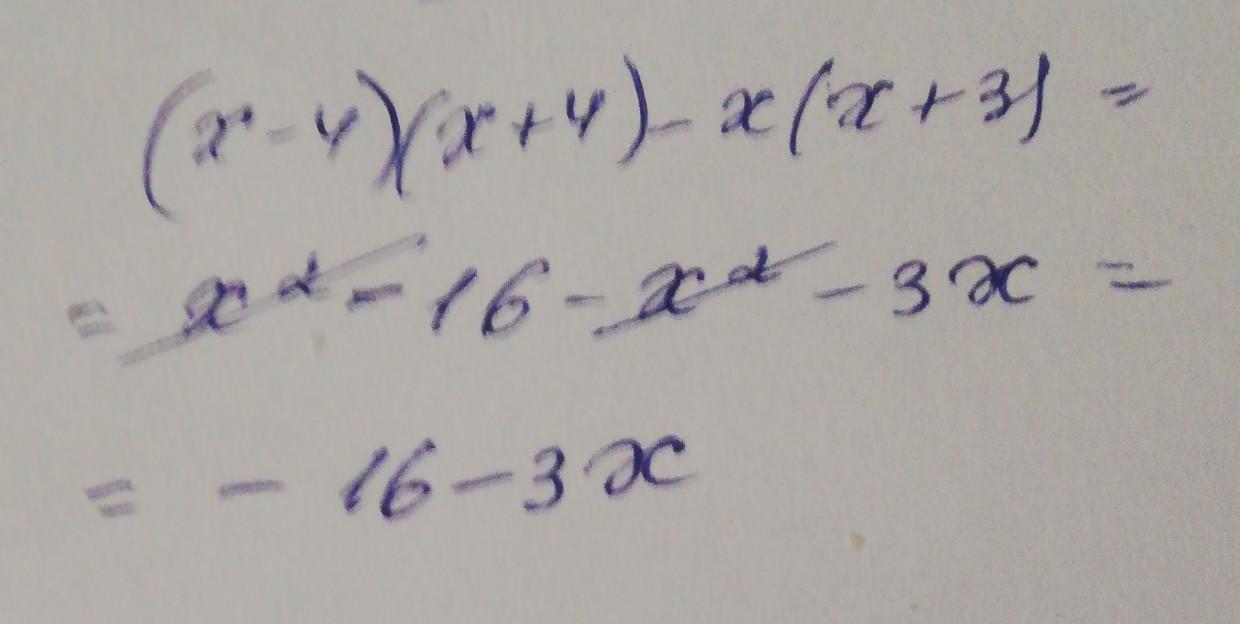 (x-4)(x+4)-x(x+3)=
=x²-16-x²-3x=
=-16-3x